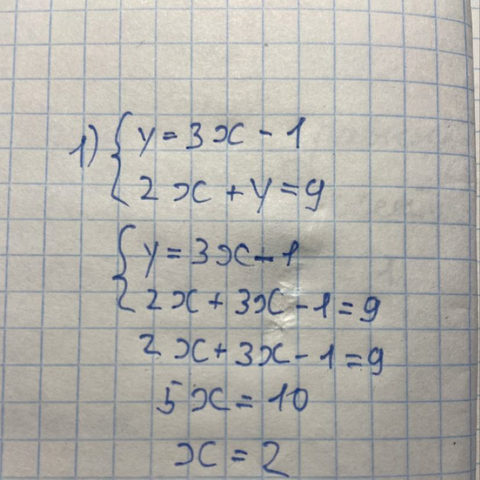 1) { y = 3x - 1
2x + y = 9
{ y = 3x - 1
2x + 3x - 1 = 9
2x + 3x - 1 = 9
5x = 10
x = 2